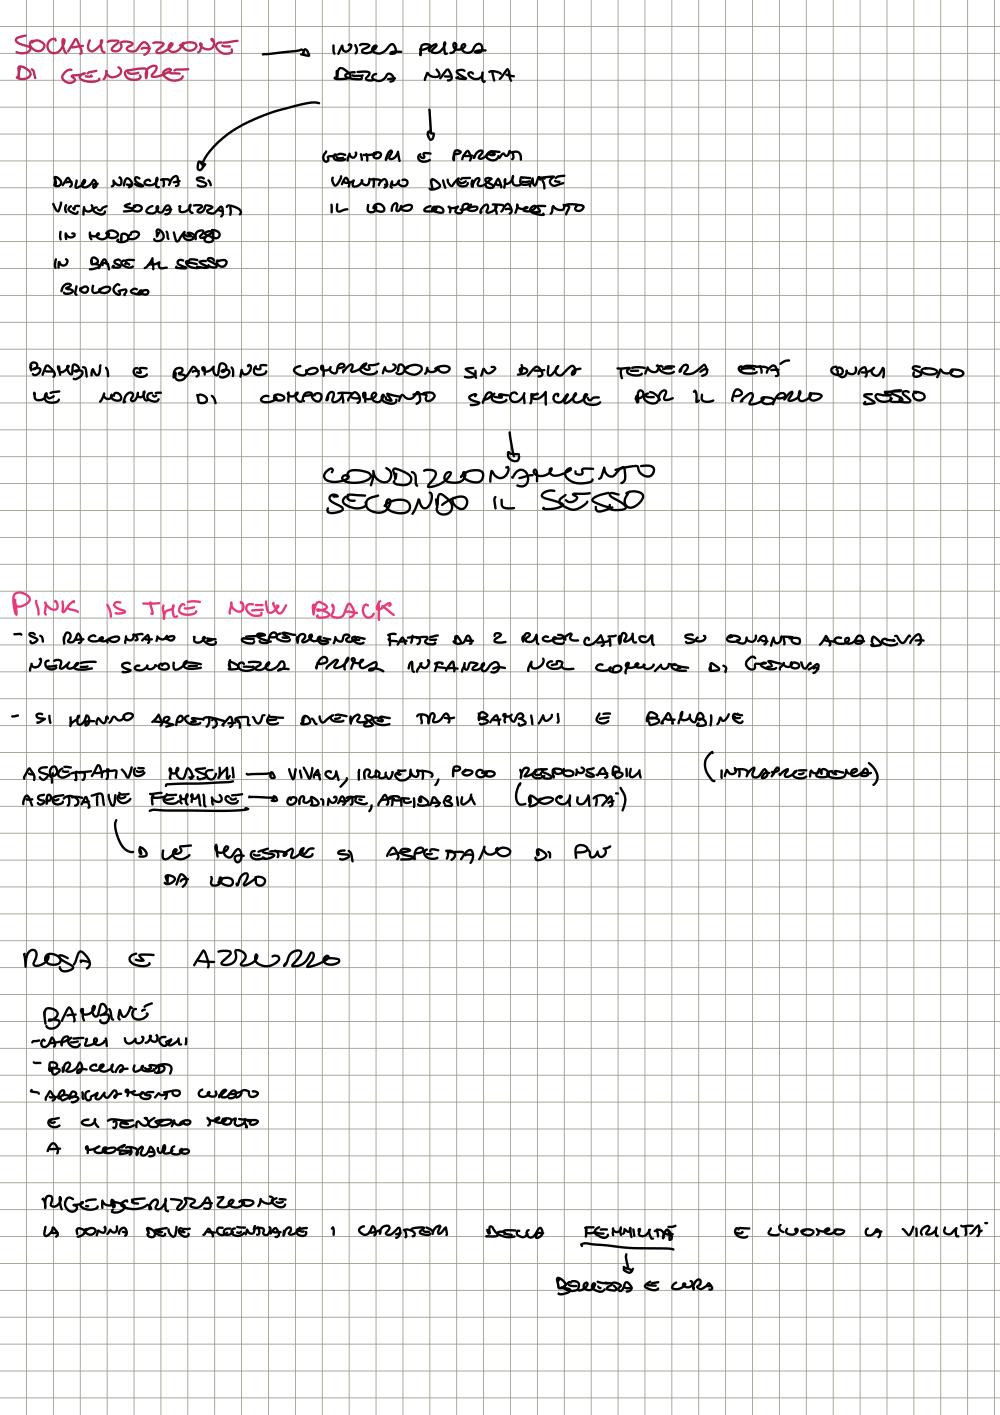 SOCIALIZZAZIONE
DI GENERE
INIZIA PRIMA
DELLA NASCITA
DALLA NASCITA SI
VIENE SOCIALIZZATI
IN MODO DIVERSO
IN BASE AL SESSO
BIOLOGICO
GENITORI E PARENTI
VALUTANO DIVERSAMENTE
IL LORO COMPORTAMENTO
BAMBINI E BAMBINE COMPRENDONO SIN DALLA TENERA ETÀ QUALI SONO
LE NORME DI COMPORTAMENTO SPECIFICHE PER IL PROPRIO SESSO
CONDIZIONAMENTO
SECONDO IL SESSO
PINK IS THE NEW BLACK
- SI RACCONTANO LE ESPERIENZE FATTE DA 2 RICERCATRICI SU QUANTO ACCADEVA
NELLE SCUOLE DELLA PRIMA INFANZIA NEL COMUNE DI GENOVA
- SI HANNO ASPETTATIVE DIVERSE TRA BAMBINI E BAMBINE
ASPETTATIVE MASCHI → VIVACI, IRRUENTI, POCO RESPONSABILI (INTRAPRENDENZA)
ASPETTATIVE FEMMINE → ORDINATE, AFFIDABILI (DOCILITÀ)
LE MAESTRE SI ASPETTANO DI PIÙ
DA LORO
ROSA E AZZURRO
BAMBINE
- CAPELLI LUNGHI
- BRACCIALETTI
- ABBIGLIAMENTO CURATO
E CI TENGONO MOLTO
A MOSTRARLO
RIGENDERIZZAZIONE
LA DONNA DEVE ACCENTUARE I CARATTERI DELLA FEMMILITÀ E L'UOMO LA VIRILITÀ
BELLEZZA E CURA